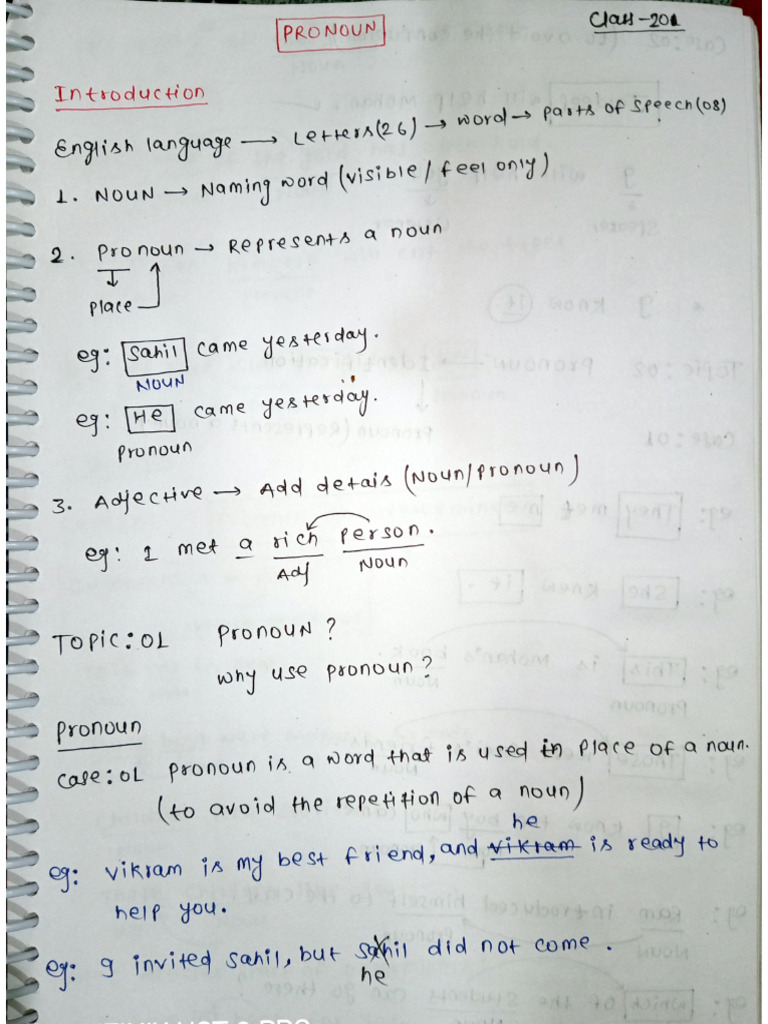 Class-20L
PRONOUN
Introduction
English language → Letters(26) → word → parts of speech(08)
1. NOUN → Naming word (visible / feel only)
2. Pronoun → Represents a noun
Place
eg: Sahil came yesterday.
NOUN
eg: He came yesterday.
Pronoun
3. Adjective → Add detais (Noun/pronoun)
eg: I met a rich person.
Adj Noun
TOPIC:01 PRONOUN?
why use pronoun?
Pronoun
case:01 pronoun is a word that is used in place of a noun.
(to avoid the repetition of a noun)
he
eg: vikram is my best friend, and vikram is ready to
help you.
eg: I invited Sahil, but Sahil did not come.
he